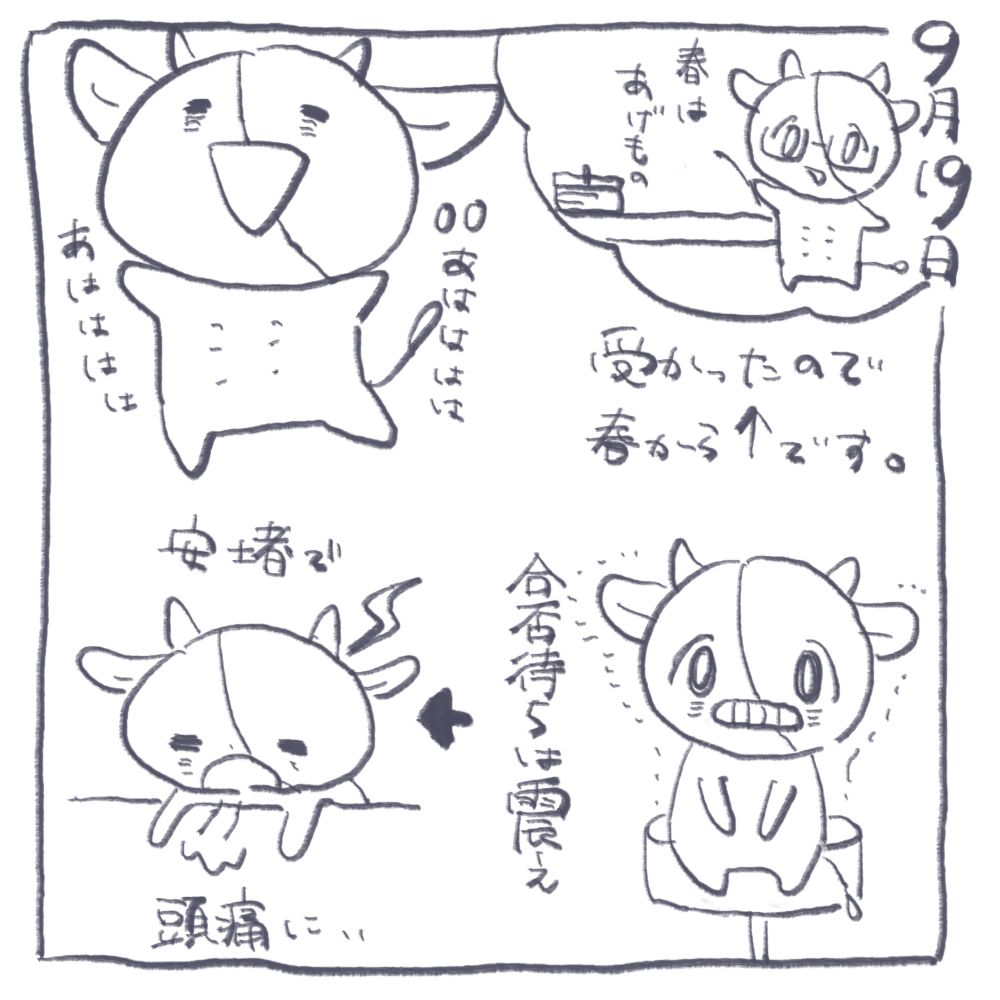 9月19日
春は
あげもの
受かったので
春から↑です。
○○あはははは
あはははは
合否待ちは震え
安堵で
頭痛に…